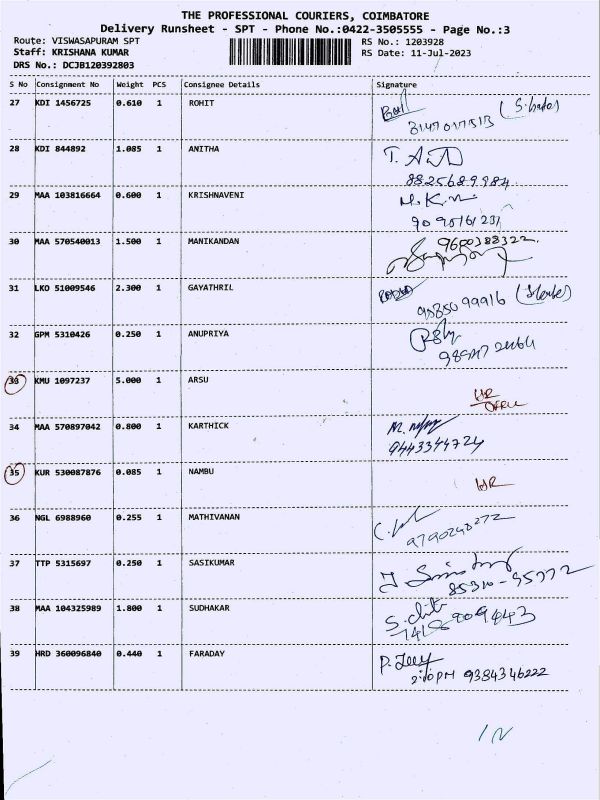 THE PROFESSIONAL COURIERS, COIMBATORE
Delivery Runsheet - SPT - Phone No.:0422-3505555 - Page No.:3
Route: VISWASAPURAM SPT RS No.: 1203928
Staff: KRISHANA KUMAR RS Date: 11-Jul-2023
DRS No.: DCJB120392803
S No Consignment No Weight PCS Consignee Details Signature
27 KDI 1456725 0.610 1 ROHIT
28 KDI 844892 1.085 1 ANITHA
8825689984
29 MAA 103816664 0.600 1 KRISHNAVENI
30 MAA 570540013 1.500 1 MANIKANDAN 9600388322
31 LKO 51009546 2.300 1 GAYATHRIL
32 GPM 5310426 0.250 1 ANUPRIYA
33 KMU 1097237 5.000 1 ARSU
34 MAA 570897042 0.800 1 KARTHICK
9443344724
35 KUR 530087876 0.085 1 NAMBU
36 NGL 6988960 0.255 1 MATHIVANAN
9790248272
37 TTP 5315697 0.250 1 SASIKUMAR
85310-95772
38 MAA 104325989 1.800 1 SUDHAKAR
39 HRD 360096840 0.440 1 FARADAY
2:10 PM 9384346222